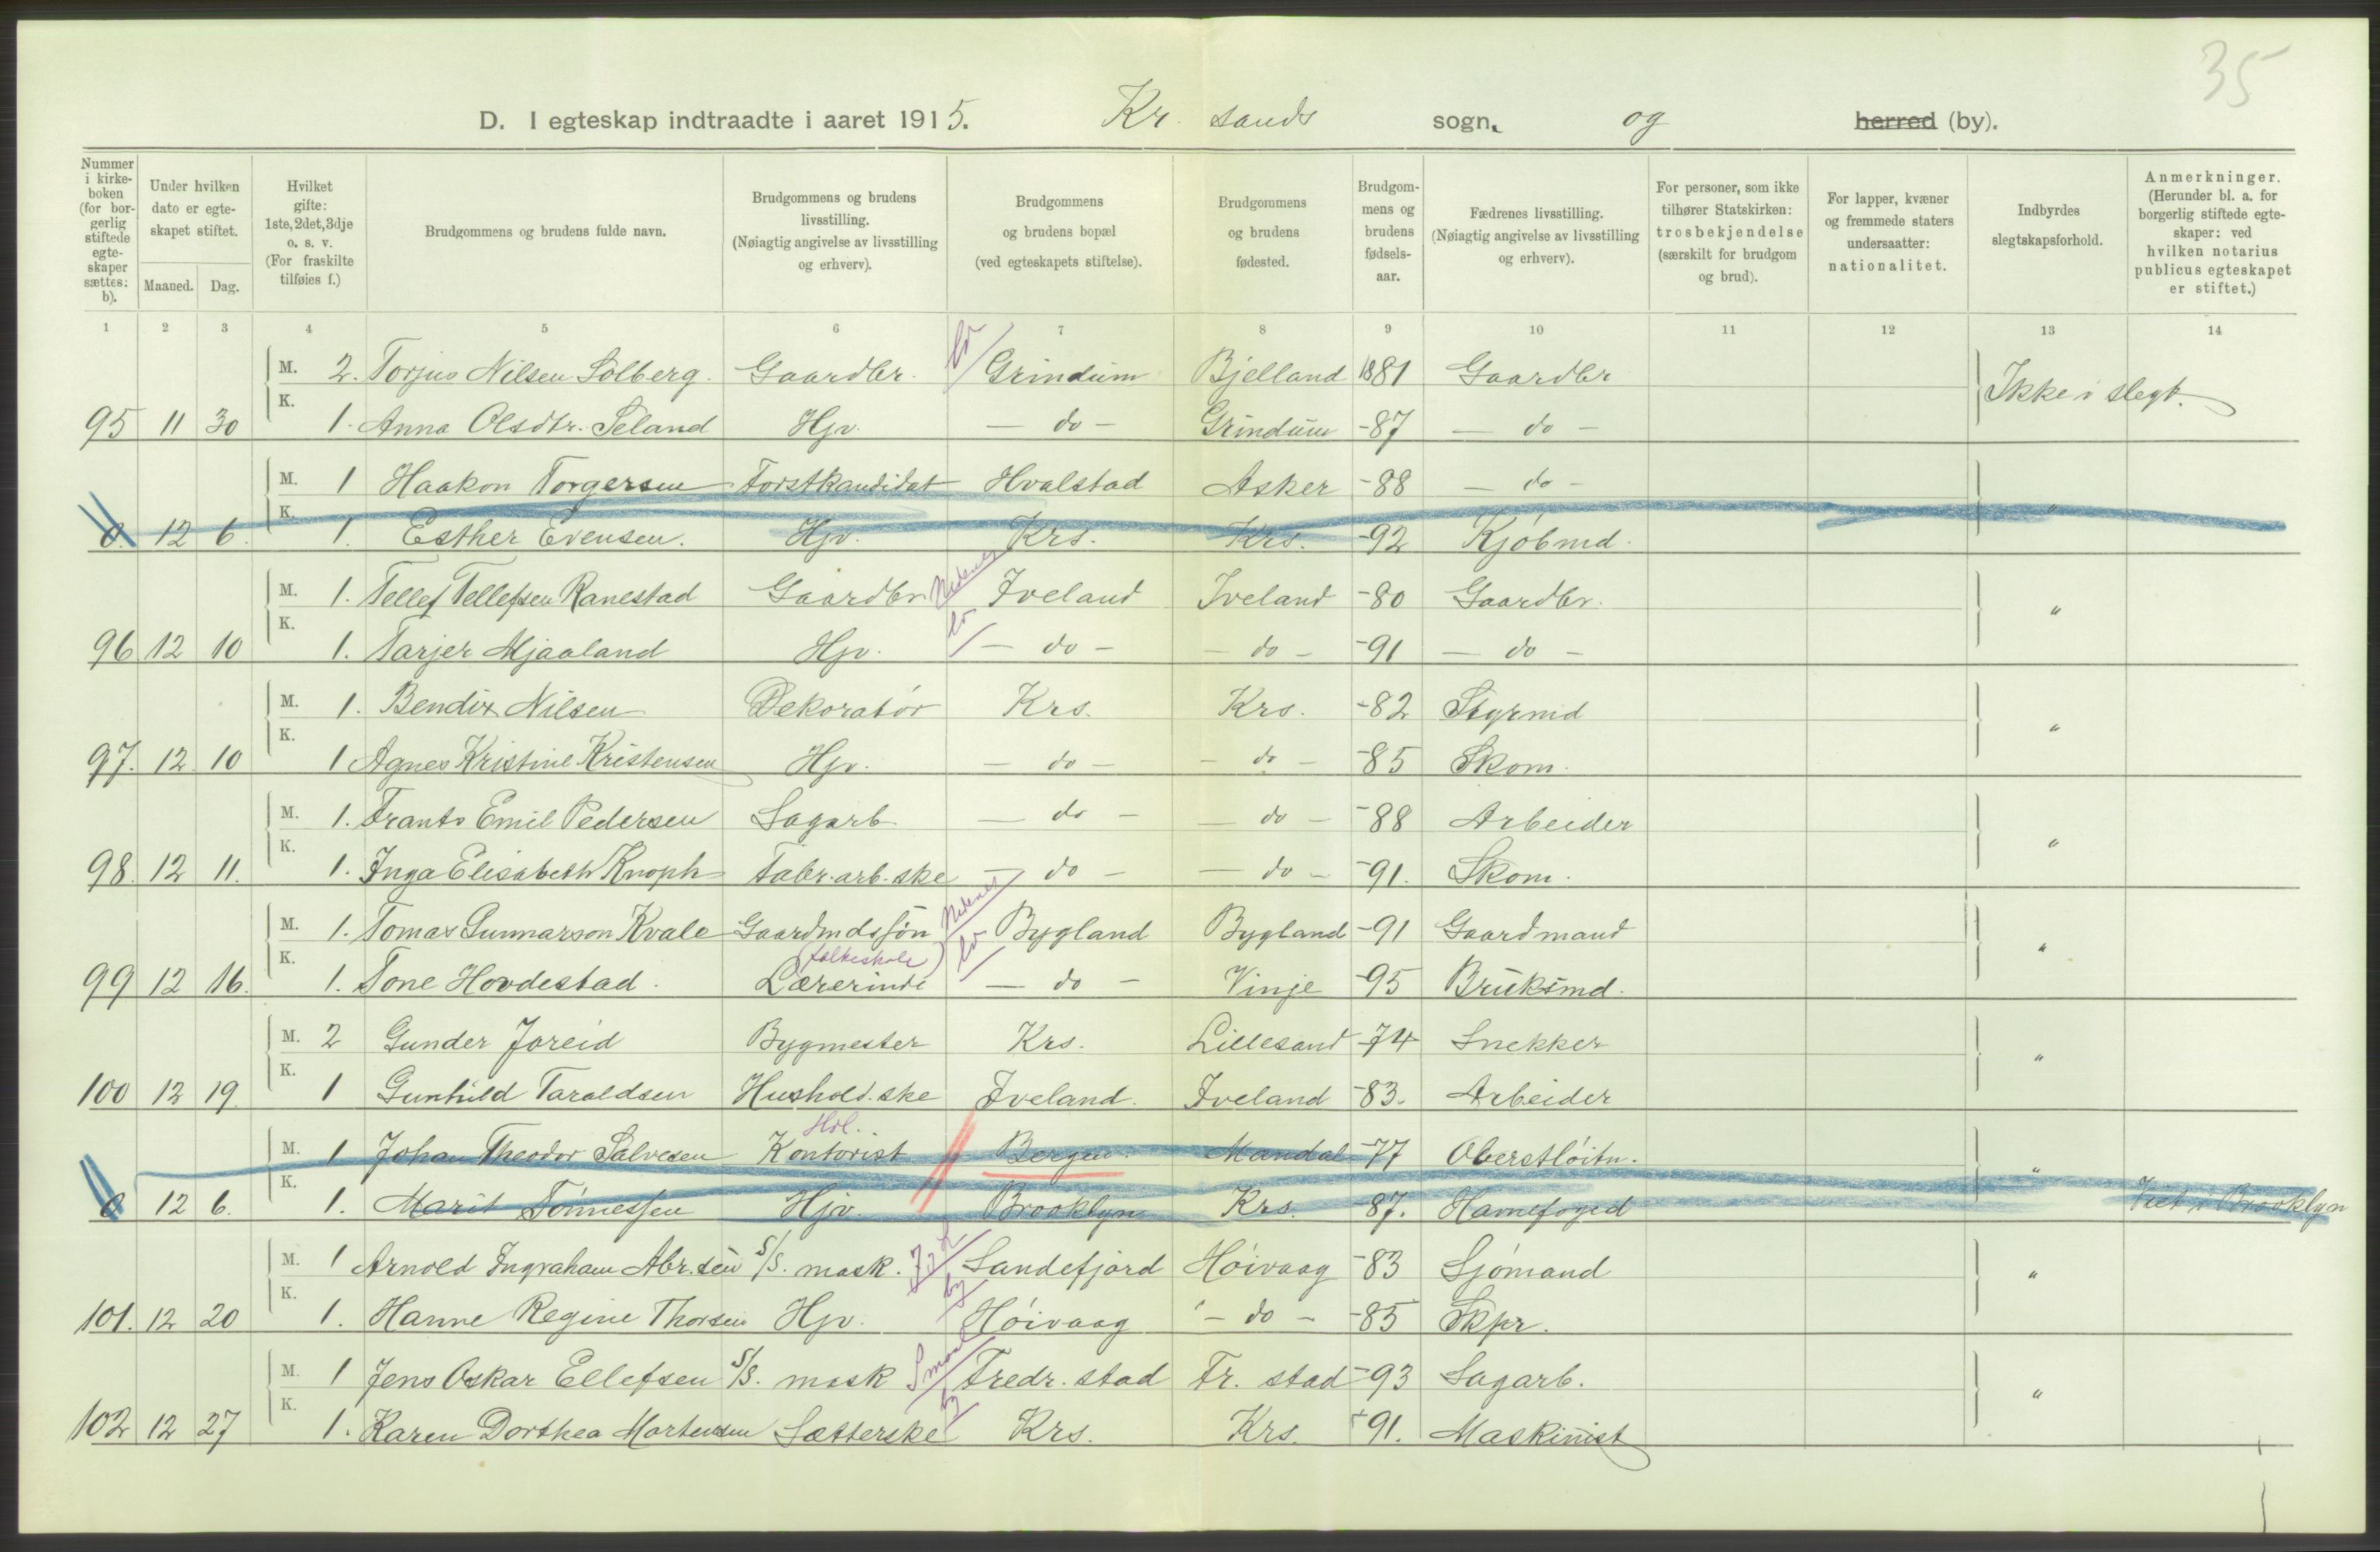 35
D. I egteskap indtraadte i aaret 1915. Kr. sands sogn, og herred (by).
Nummer i kirkeboken (for borgerlig stiftede egteskaper sættes: b).
Under hvilken dato er egteskapet stiftet.
Maaned. Dag.
Hvilket gifte: 1ste, 2det, 3dje o. s. v. (For fraskilte tilføies f.)
Brudgommens og brudens fulde navn.
Brudgommens og brudens livsstilling. (Nøiagtig angivelse av livsstilling og erhverv).
Brudgommens og brudens bopæl (ved egteskapets stiftelse).
Brudgommens og brudens fødested.
Brudgommens og brudens fødselsaar.
Fædrenes livsstilling. (Nøiagtig angivelse av livsstilling og erhverv).
For personer, som ikke tilhører Statskirken: trosbekjendelse (særskilt for brudgom og brud).
For lapper, kvæner og fremmede staters undersaatter: nationalitet.
Indbyrdes slegtskapsforhold.
Anmerkninger. (Herunder bl. a. for borgerlig stiftede egteskaper: ved hvilken notarius publicus egteskapet er stiftet.)
1 2 3 4 5 6 7 8 9 10 11 12 13 14
M. 2. Torjus Nilsen Solberg. Gaardbr. Grindum Bjelland 1881 Gaardbr Ikke i slegt.
95 11 30 K. 1. Anna Olsdtr. Seland Hjv. — do — Grindum -87 — do —
M. 1 Haakon Torgersen Forstkandidat Hvalstad Asker -88 — do — "
0. 12 6. K. 1. Esther Evensen. Hjv. Krs. Krs. -92 Kjøbmd.
M. 1. Tellef Tellefsen Ranestad Gaardbr Nedenes Iveland Iveland -80 Gaardbr. "
96 12 10 K. 1. Tarjer Mjaaland Hjv. — do — — do — -91 — do —
M. 1. Bendix Nilsen Dekoratør Krs. Krs. -82 Styrmd "
97. 12 10 K. 1 Agnes Kristine Kristensen Hjv. — do — — do — -85 Skom.
M. 1. Frants Emil Pedersen Sagarb. — do — — do — -88 Arbeider "
98. 12 11. K. 1. Inga Elisabeth Knoph Fabr. arb. ske — do — — do — -91. Skom.
M. 1. Tomas Gunnarson Kvale Gaardmdssøn Nedenes Bygland Bygland -91 Gaardmand "
(folkeskole)
99 12 16. K. 1. Tone Hovdestad. Lærerinde — do — Vinje -95 Bruksmd.
M. 2 Gunder Joreid Bygmester Krs. Lillesand -74 Snekker "
100 12 19. K. 1 Gunhild Taraldsen Hushold. ske Iveland. Iveland -83. Arbeider
Hdl.
M. 1 Johan Theodor Salvesen Kontorist Bergen. Mandal -77 Oberstløitn. "
0 12 6. K. 1. Marit Tønnessen Hjv. Brooklyn Krs. -87. Havnefoged Viet i Brooklyn
M. 1 Arnold Ingraham Abr.sen S/S. mask. Sandefjord Høivaag -83 Sjømand "
101. 12 20 K. 1. Hanne Regine Thorsen Hjv. by Høivaag — do — -85 Skpr.
M. 1 Jens Oskar Ellefsen S/S. mask Smaal Fredr. stad Fr. stad -93 Sagarb. "
102 12 27 K. 1. Karen Dorthea Mortensen Sætterske by Krs. Krs. -91. Maskinist